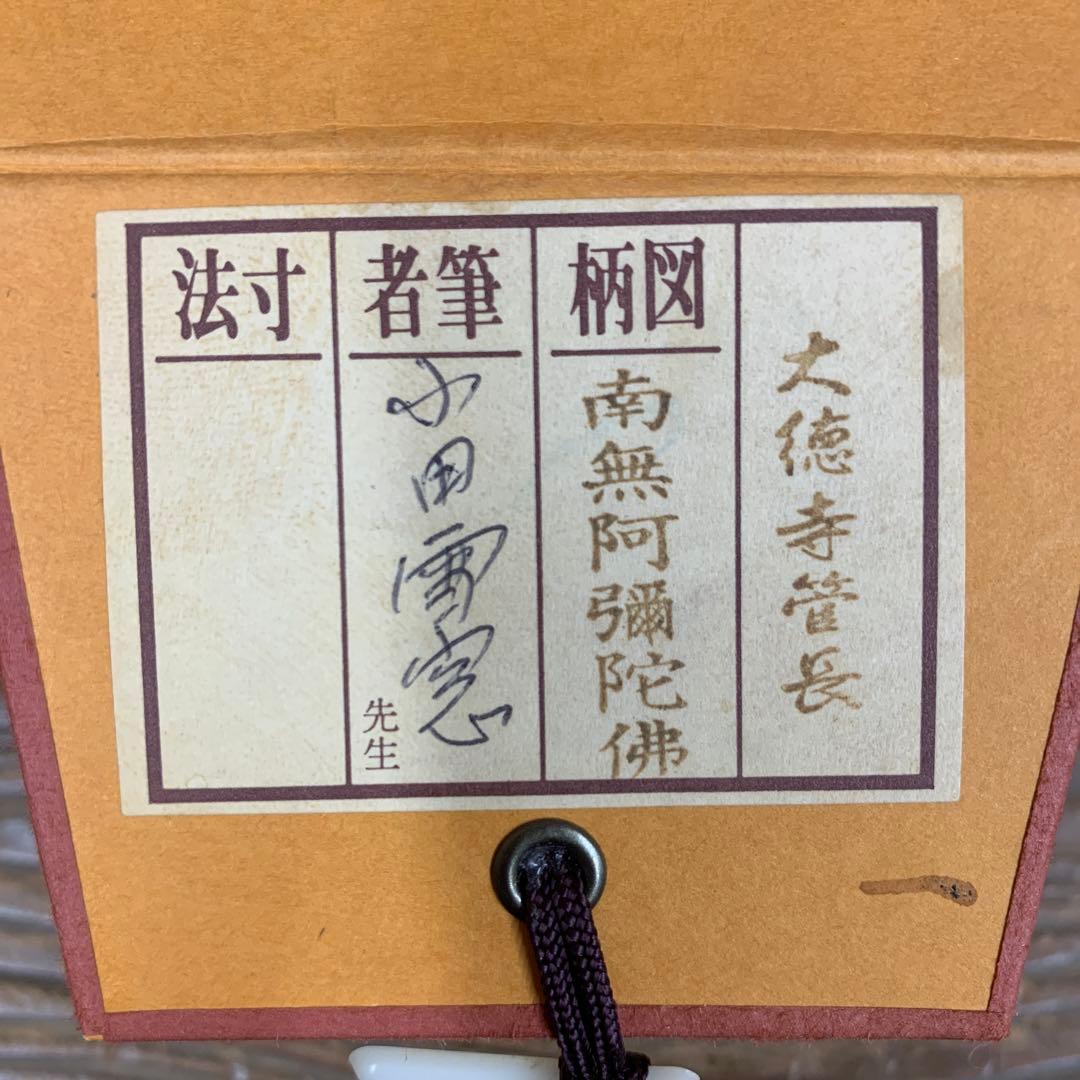 大徳寺管長
図柄
南無阿彌陀佛
筆者
小田雪窓
先生
寸法